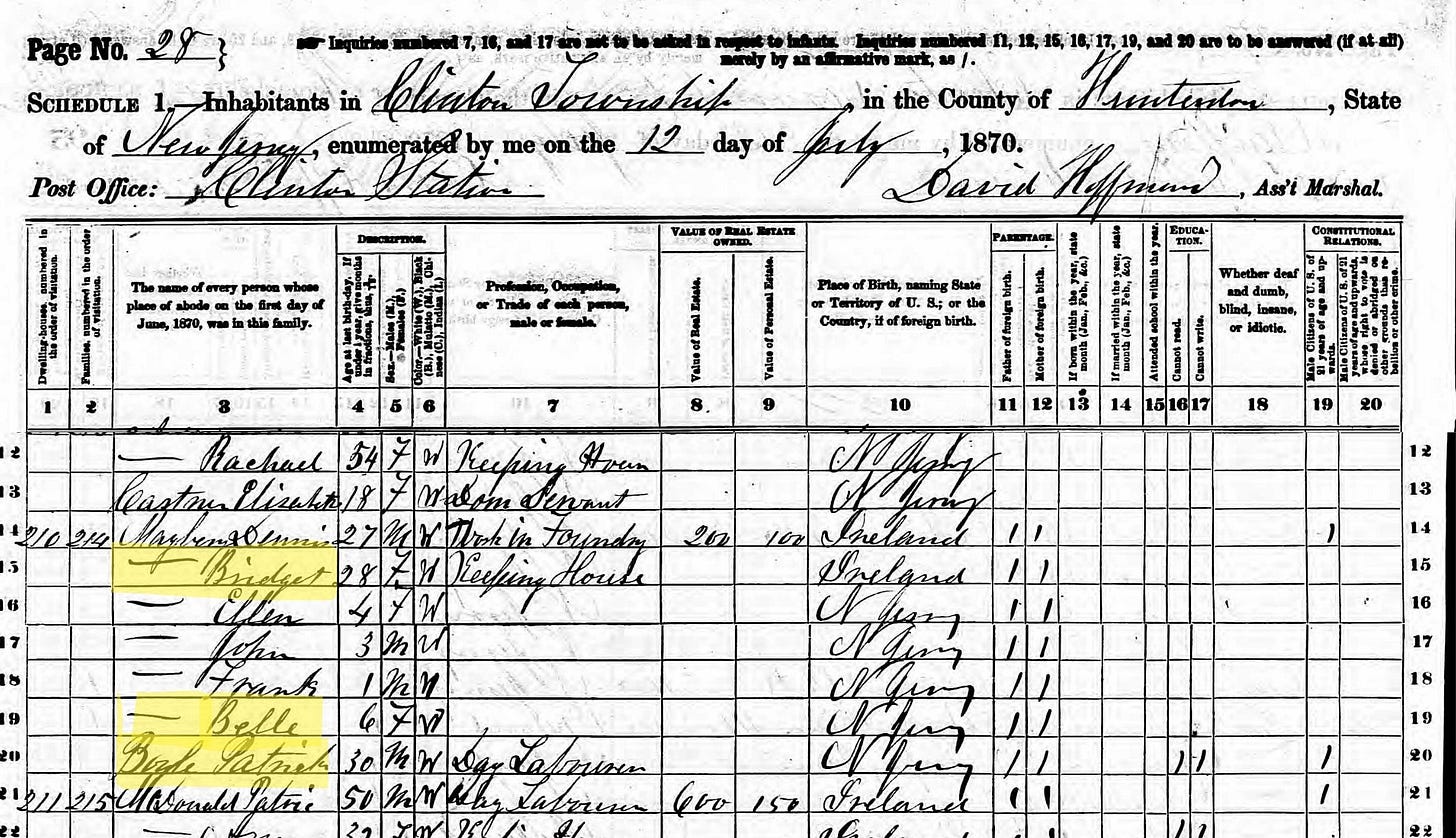 Page No. 28 }
Inquiries numbered 7, 16, and 17 are not to be asked in respect to infants. Inquiries numbered 11, 12, 15, 16, 17, 19, and 20 are to be answered (if at all)
merely by an affirmative mark, as /.
SCHEDULE 1.—Inhabitants in Clinton Township, in the County of Hunterdon, State
of New Jersey, enumerated by me on the 12 day of July, 1870.
Post Office: Clinton Station David Hoffman, Ass't Marshal.
Dwelling-houses, numbered in the order of visitation.
Families, numbered in the order of visitation.
The name of every person whose place of abode on the first day of June, 1870, was in this family.
DESCRIPTION.
Age at last birth-day. If under 1 year, give months in fractions, thus,
Sex.—Males (M.), Females (F.)
Color.—White (W.), Black (B.), Mulatto (M.), Chinese (C.), Indian (I.)
Profession, Occupation, or Trade of each person, male or female.
VALUE OF REAL ESTATE OWNED.
Value of Real Estate.
Value of Personal Estate.
Place of Birth, naming State or Territory of U. S.; or the Country, if of foreign birth.
PARENTAGE.
Father of foreign birth.
Mother of foreign birth.
If born within the year, state month (Jan., Feb., &c.)
If married within the year, state month (Jan., Feb., &c.)
Attended school within the year.
EDUCATION.
Cannot read.
Cannot write.
Whether deaf and dumb, blind, insane, or idiotic.
CONSTITUTIONAL RELATIONS.
Male Citizens of U. S. of 21 years of age and upwards.
Male Citizens of U. S. of 21 years of age and upwards, whose right to vote is denied or abridged on other grounds than rebellion or other crime.
1 2 3 4 5 6 7 8 9 10 11 12 13 14 15 16 17 18 19 20
12 — Rachael 54 F W Keeping Hous N Jersey 12
13 Castner Elisabeth 18 F W Dom Servant N Jersey 13
14 210 214 Dennis 27 M W Work in Foundry 200 100 Ireland 1 1 1 14
15 — Bridget 28 F W Keeping House Ireland 1 1 15
16 — Ellen 4 F W N Jersey 1 1 16
17 — John 3 M W N Jersey 1 1 17
18 — Frank 1 M W N Jersey 1 1 18
19 — Belle 6 F W N Jersey 1 1 19
20 Boyle Patrick 30 M W Day Labourer N Jersey 1 1 1 1 1 20
21 211 215 McDonald Patric 50 M W Day Labourer 600 150 Ireland 1 1 1 21
22 22